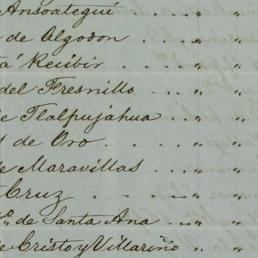 Ansoategui . . . . „ „
de Algodon . . . . „ „
Recibir . . . . „ „
del Fresnillo . . . . „ „
Tlalpujahua . . . „ „
de Oro . . . . „ „
Maravillas . . . „ „
Cruz . . . . „ „
de Santa Ana . . . „ „
Cristo y Villariño . . „ „